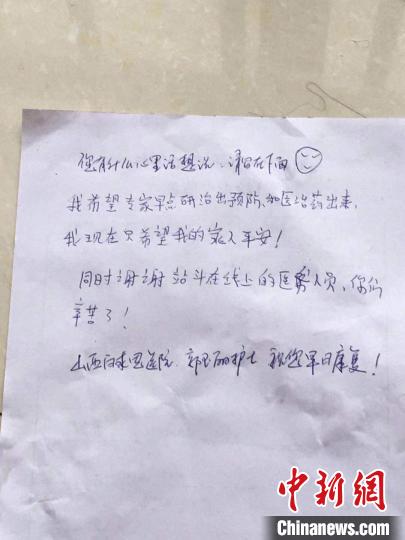 您有什么心里话想说，请写在下面
我希望专家早点研治出预防、和医治药出来，
我现在只希望我的家人平安！
同时谢谢站斗在线上的医务人员，你们
辛苦了！
山西白求恩医院 郭 丽护士 祝您早日康复！
中新网
Chinanews.com